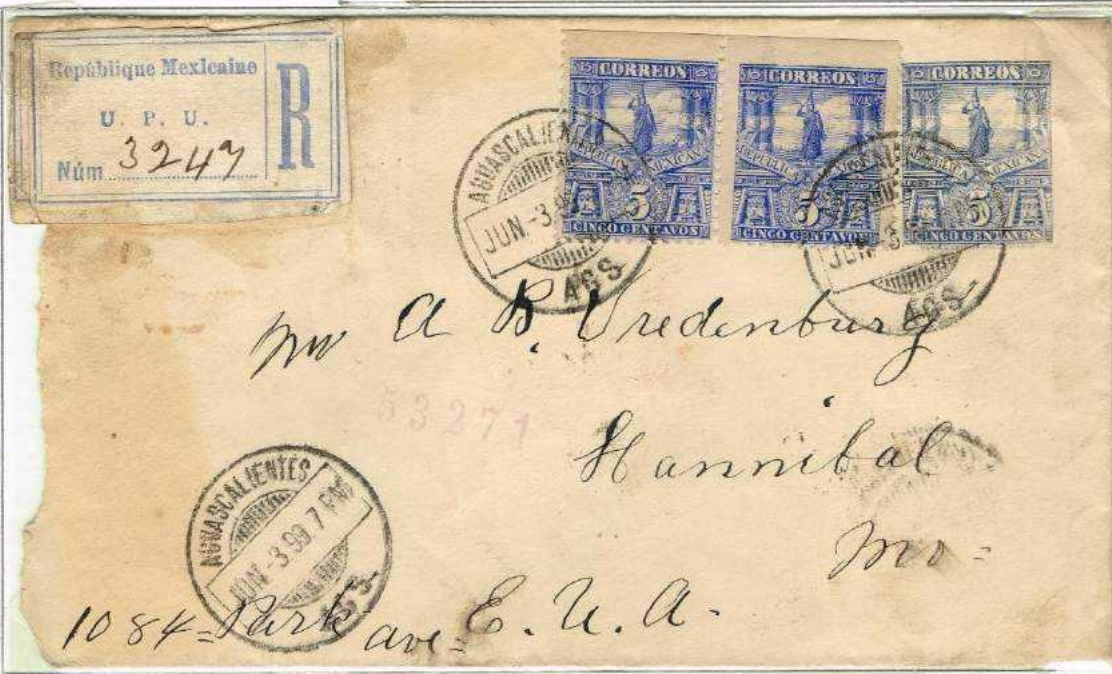 République Mexicaine
U. P. U.
Núm 3247
R
CORREOS
REPUBLICA MEXICANA
5
CINCO CENTAVOS
CORREOS
REPUBLICA MEXICANA
5
CINCO CENTAVOS
CORREOS
REPUBLICA MEXICANA
5
CINCO CENTAVOS
AGUASCALIENTES
JUN -3.9
AGS
JUN -3
AGS
A B. Vredenburg
53271
Hannibal
Mo=
AGUASCALIENTES
JUN -3.99.7 PM
AGS
1084= Park ave= E. U. A.